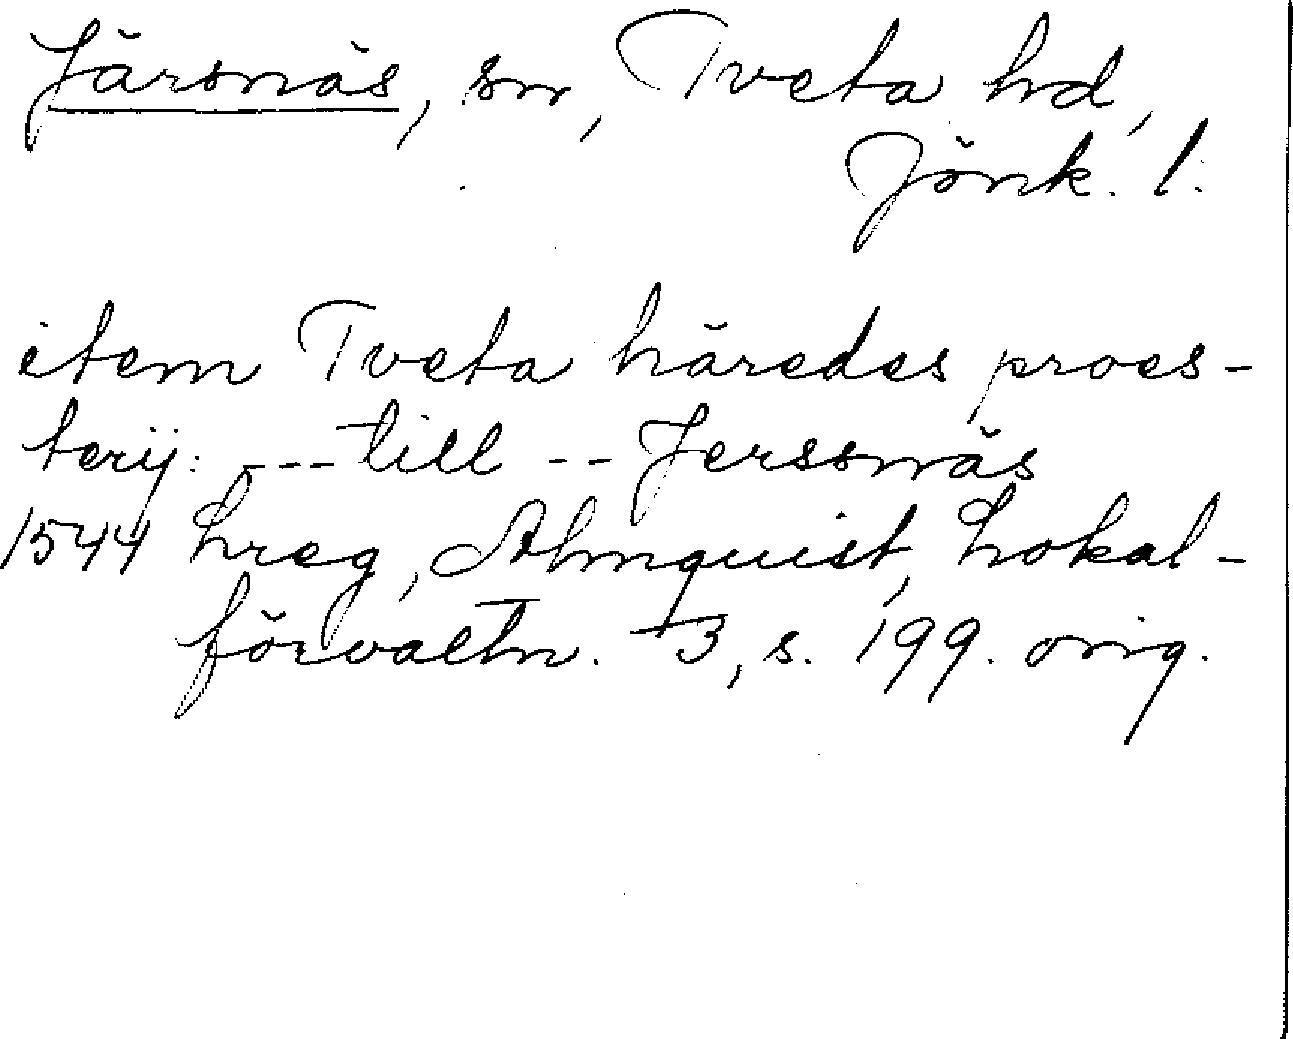 Järsnäs, sn, Tveta hd,
Jönk. l.
item Tveta häredes proes-
terij: --- till -- Jerssnäs
1544 Lreg, Almquist, Lokal-
förvaltn. 3, s. 199. orig.